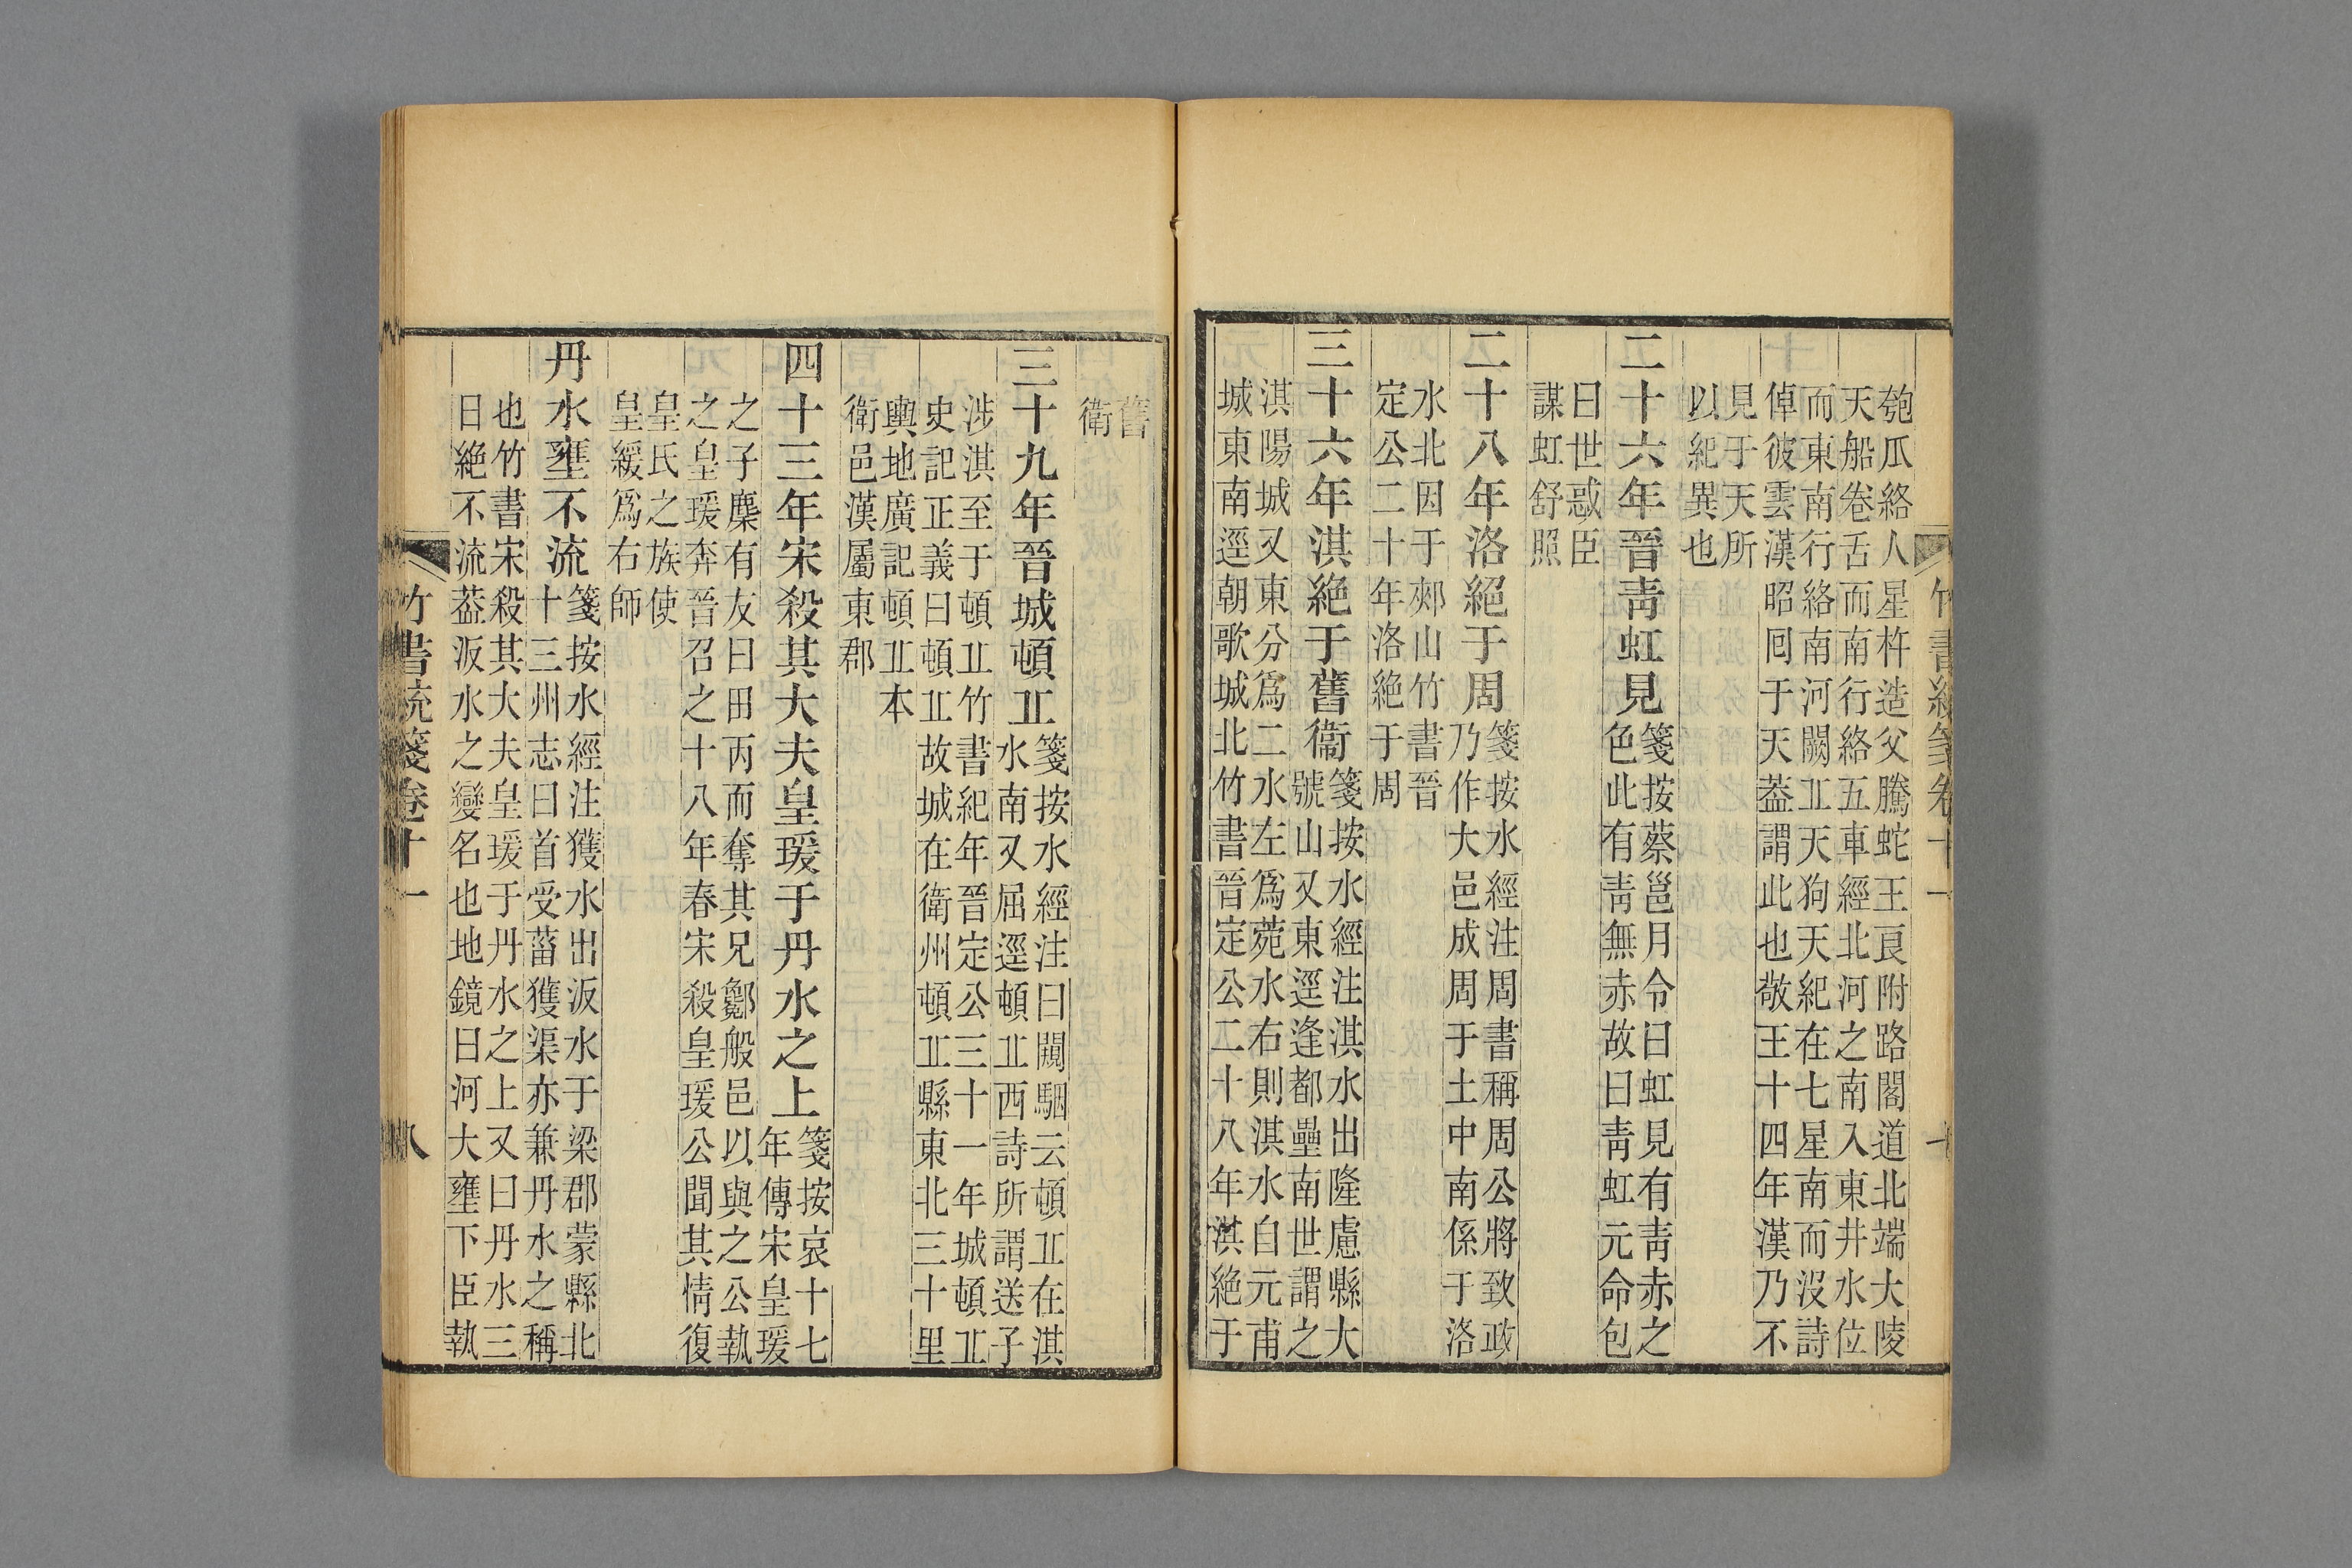 竹書統箋卷十一
匏瓜絡人星杵造父騰蛇王良附路閣道北端大陵
天船卷舌而南行絡五車經北河之南入東井水位
而東南行絡南河闕丠天狗天紀在七星南而沒詩
倬彼雲漢昭囘于天葢謂此也敬王十四年漢乃不
見于天所
以紀異也
二十六年晉青虹見
箋按蔡邕月令曰虹見有青赤之
色此有青無赤故曰青虹元命包
曰世惑臣
謀虹舒照
二十八年洛絕于周
箋按水經注周書稱周公將致政
乃作大邑成周于土中南係于洛
水北因于郟山竹書晉
定公二十年洛絕于周
三十六年淇絕于舊衞
箋按水經注淇水出隆慮縣大
號山又東逕逢都壘南世謂之
淇陽城又東分爲二水左爲菀水右則淇水自元甫
城東南逕朝歌城北竹書晉定公二十八年淇絕于
舊
衛
三十九年晉城頓丠
箋按水經注曰闞駰云頓丠在淇
水南又屈逕頓丠西詩所謂送子
涉淇至于頓丠竹書紀年晉定公三十一年城頓丠
史記正義曰頓丠故城在衛州頓丠縣東北三十里
輿地廣記頓丠本
衛邑漢屬東郡
四十三年宋殺其大夫皇瑗于丹水之上
箋按哀十七
年傳宋皇瑗
之子麇有友曰田丙而奪其兄酁般邑以與之公執
之皇瑗奔晉召之十八年春宋殺皇瑗公聞其情復
皇氏之族使
皇緩爲右師
丹水壅不流
箋按水經注獲水出汳水于梁郡蒙縣北
十三州志曰首受菑獲渠亦兼丹水之稱
也竹書宋殺其大夫皇瑗于丹水之上又曰丹水三
日絕不流葢汳水之變名也地鏡曰河大壅下臣執
竹書統箋卷十一
八